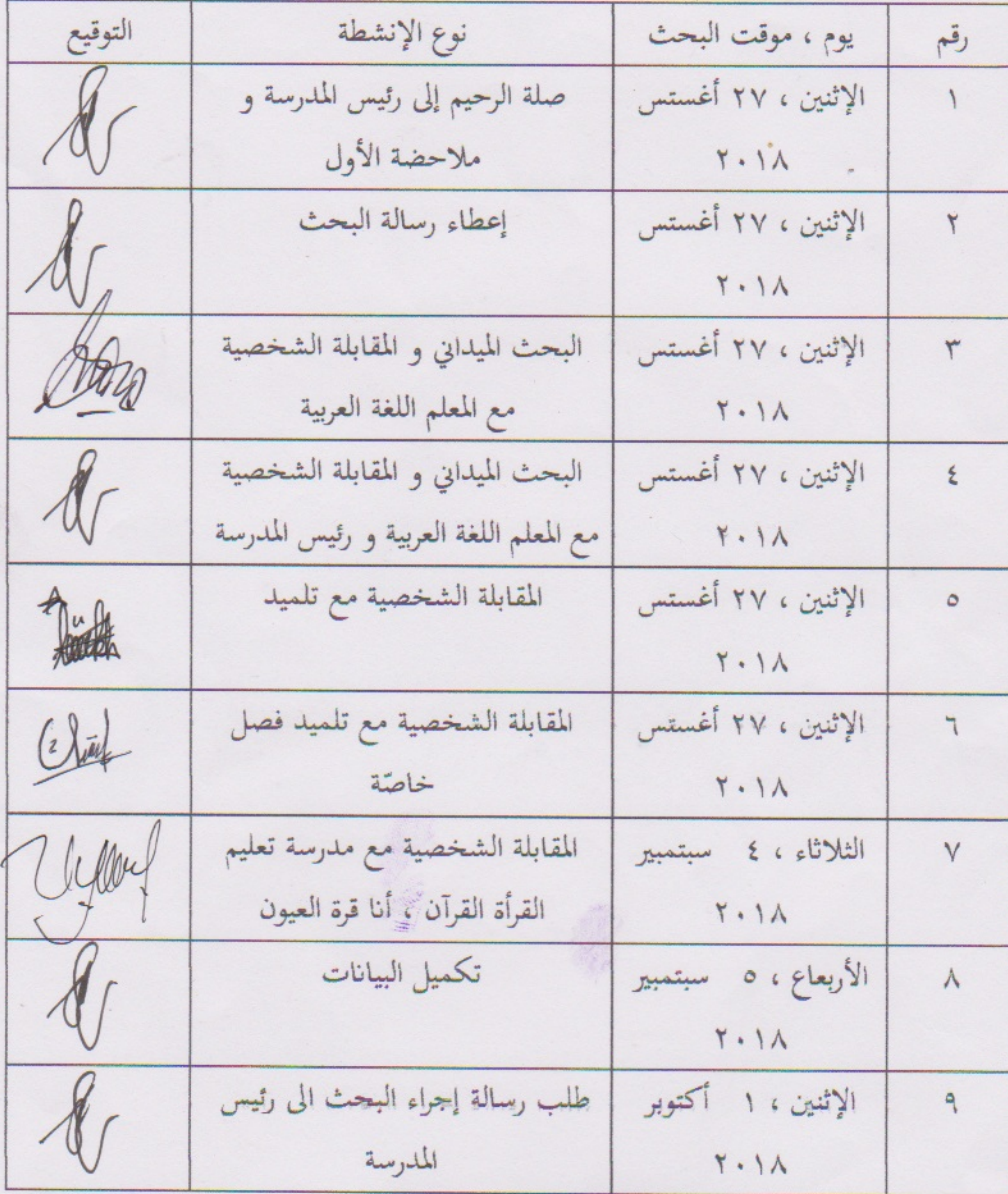 رقم يوم ، موقت البحث نوع الإنشطة التوقيع
١ الإثنين ، ٢٧ أغستس صلة الرحيم إلى رئيس المدرسة و
٢٠١٨ ملاحضة الأول
٢ الإثنين ، ٢٧ أغستس إعطاء رسالة البحث
٢٠١٨
٣ الإثنين ، ٢٧ أغستس البحث الميداني و المقابلة الشخصية
٢٠١٨ مع المعلم اللغة العربية
٤ الإثنين ، ٢٧ أغستس البحث الميداني و المقابلة الشخصية
٢٠١٨ مع المعلم اللغة العربية و رئيس المدرسة
٥ الإثنين ، ٢٧ أغستس المقابلة الشخصية مع تلميد
٢٠١٨
٦ الإثنين ، ٢٧ أغستس المقابلة الشخصية مع تلميد فصل
٢٠١٨ خاصّة
٧ الثلاثاء ، ٤ سبتمبير المقابلة الشخصية مع مدرسة تعليم
٢٠١٨ القرأة القرآن ، أنا قرة العيون
٨ الأربعاع ، ٥ سبتمبير تكميل البيانات
٢٠١٨
٩ الإثنين ، ١ أكتوبر طلب رسالة إجراء البحث الى رئيس
٢٠١٨ المدرسة